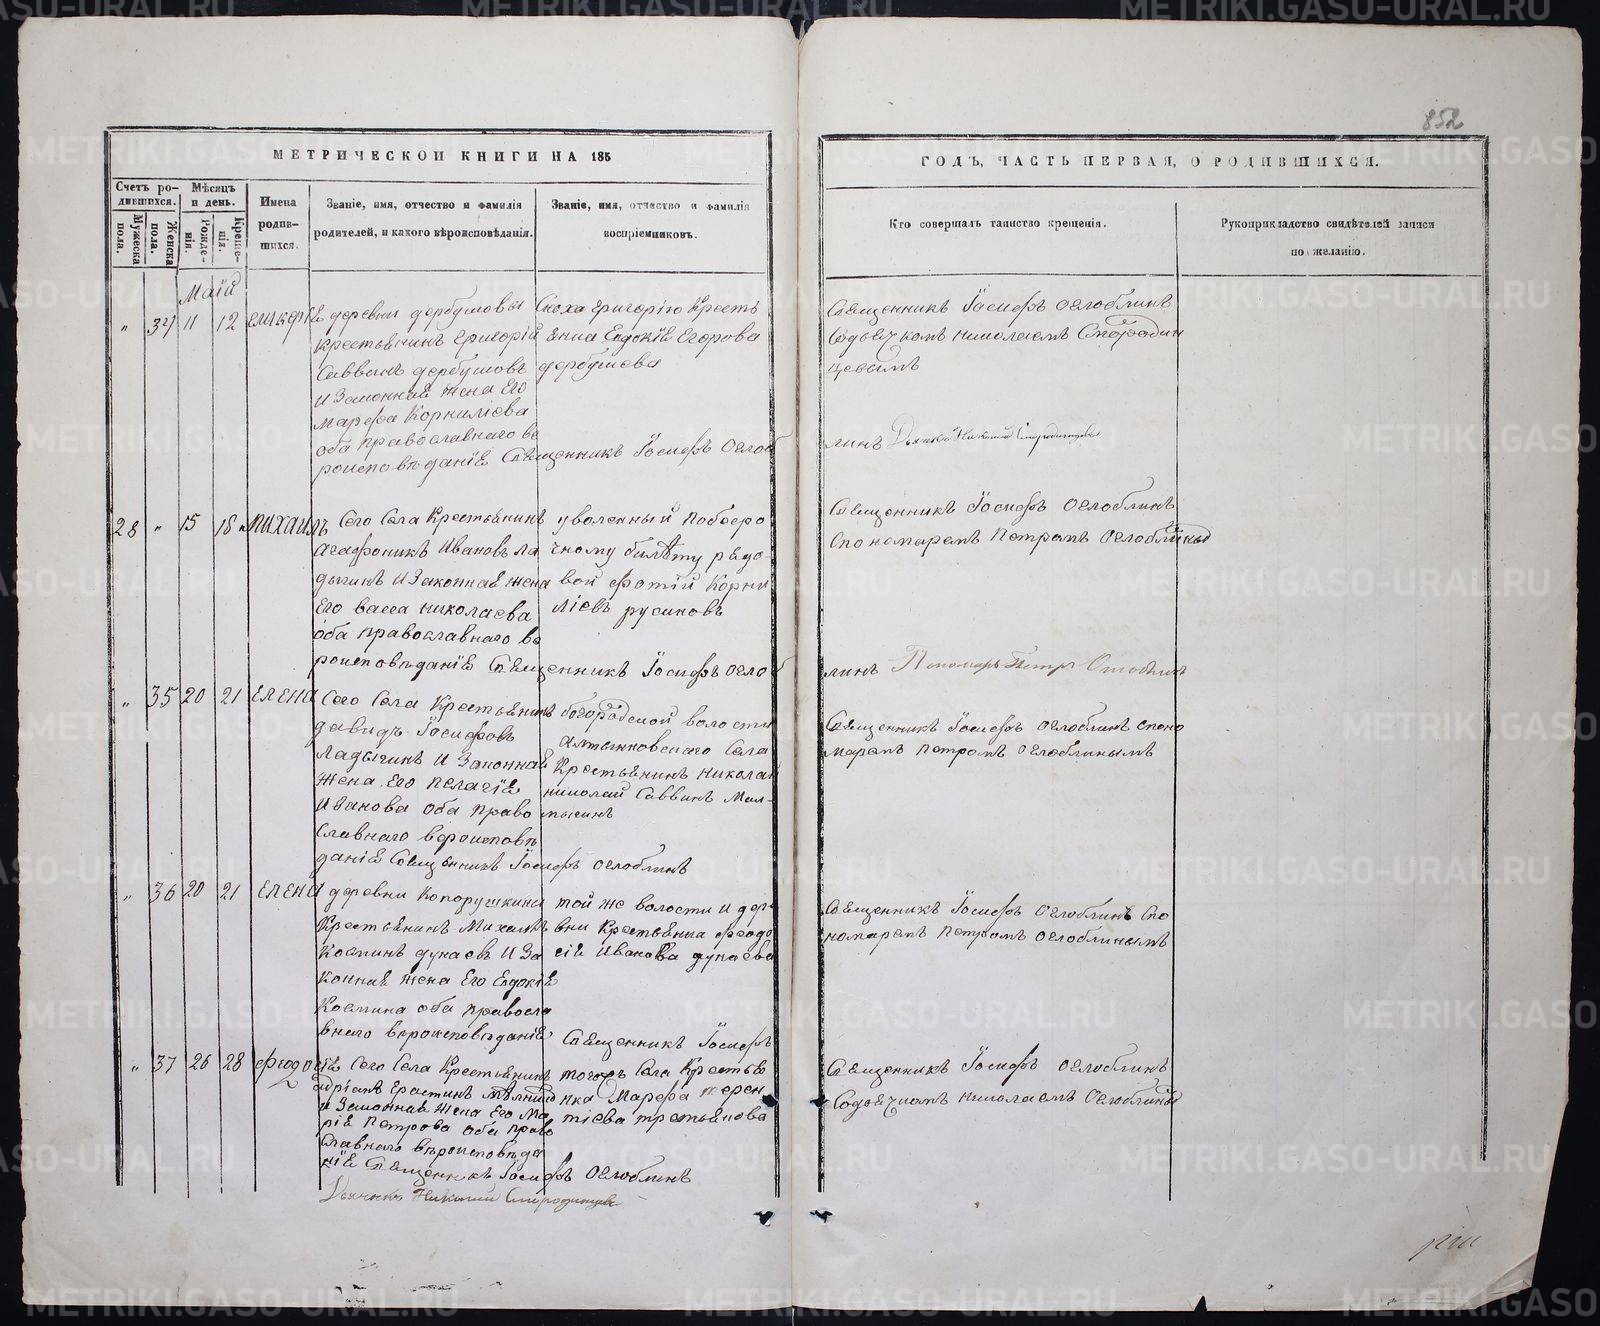 852
МЕТРИЧЕСКОЙ КНИГИ НА 185
ГОДЪ, ЧАСТЬ ПЕРВАЯ, О РОДИВШИХСЯ.
Счетъ ро-
дившихся.
Мужеска
пола.
Женска
пола.
Мѣсяцъ
и день.
Рожде-
нія.
Креще-
нія.
Имена
родив-
шихся.
Званіе, имя, отчество и фамилія
родителей, и какого вѣроисповѣданія.
Званіе, имя, отчество и фамилія
воспріемниковъ.
Кто совершалъ таинство крещенія.
Рукоприкладство свидѣтелей записи
по желанію.
Маій
„ 34 11 12 Гликеріѣ
деревни дербушовы
крестьѣнинъ Григорій
Саввинъ дербушовъ
и Законнаѣ жена Его
марфа Корниліева
оба православнаго вѣ
роисповѣданіѣ Свѣщенникъ Іосифъ Оглоб
Сноха Григорію Кресть
ѣнка Евдокіѣ Егорова
дербушева
Свѣщенникъ Іосифъ Оглоблинъ
Содьѣчкомъ николаемъ Стародин
цовымъ
линъ Дьячекъ Николай Стародинцовъ
28 „ 15 18 михаилъ
Сего Села Крестьѣнинъ
Агафоникъ Ивановъ ла
дыгинъ И Законнаѣ жена
Его васса николаева
оба православнаго вѣ
роисповѣданіѣ Свѣщенникъ Іосифъ Оглоб
уволенный побезсро
чному билѣту рѣдо
вой Фотій Корни
ліевъ русиновъ
Свѣщенникъ Іосифъ Оглоблинъ
спономаремъ Петромъ Оглоблины
линъ Пономарь Петръ Оглоблинъ
„ 35 20 21 Елена
Сего Села Крестьѣнинъ
давидъ Іосифовъ
ладыгинъ И Законнаѣ
жена Его пелагіѣ
Иванова оба право
славнаго вѣроисповѣ
даніѣ Свѣщенникъ Іосифъ Оглоблинъ
богородской волости
Алтынновскаго Села
Крестьѣнинъ николай
николай Саввинъ Мал-
Свѣщенникъ Іосифъ Оглоблинъ споно
маремъ петромъ Оглоблинымъ
„ 36 20 21 Елена
деревни Копорушкины
Крестьѣнинъ Михаилъ
Козминъ дунаевъ И За
коннаѣ жена Его Евдокіѣ
Козмина оба правосла
внаго вѣроисповѣданіѣ Свѣщенникъ Іосифъ
той же волости и дере
вни Крестьѣнка феодо
сіѣ Иванова дунаева
Свѣщенникъ Іосифъ Оглоблинъ Спо
номаремъ Петромъ Оглоблинымъ
„ 37 26 28 феодосіѣ
Сего Села Крестьѣнинъ
И Законнаѣ жена Его Ма
ріѣ Петрова оба право
славнаго вѣроисповѣда
ніѣ Свѣщенникъ Іосифъ Оглоблинъ
Дьячекъ Николай Стародинцовъ
тогожъ Села Крестьѣ
нка Марфа терен
тіева третьѣкова
Свѣщенникъ Іосифъ Оглоблинъ
Содьѣчкомъ николаемъ Оглоблины
METRIKI.GASO-URAL.RU